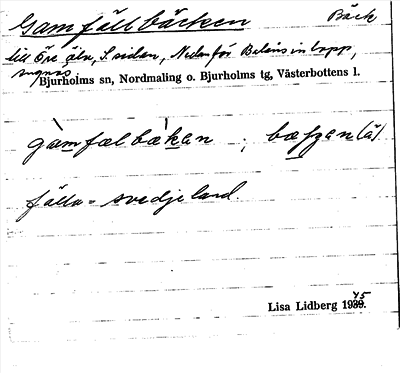 Gamfällbäcken Bäck
till Öre älv, S. sidan, Nedanför Balåsinlopp,
mynnas
Bjurholms sn, Nordmaling o. Bjurholms tg, Västerbottens l.
gàmfælbäkan ; bæʃʒen (ä)
fälla = svedjeland.
Lisa Lidberg 1945.